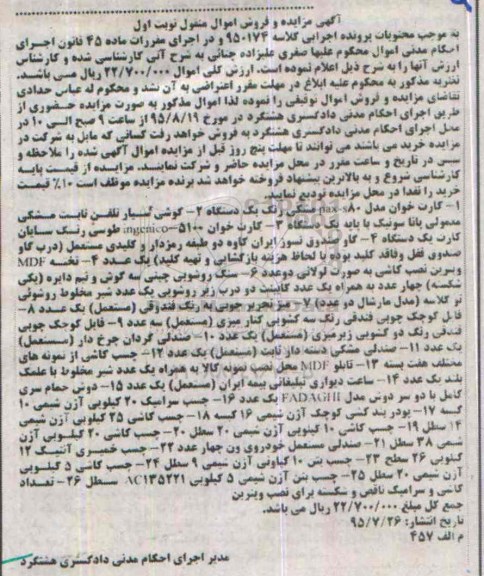 آگهی مزایده و فروش اموال منقول نوبت اول
به موجب محتویات پرونده اجرایی کلاسه ۹۵۰۱۷۴ و در اجرای مقررات ماده ۴۵ قانون اجرای
احکام مدنی اموال محکوم علیها صغری علیزاده چنانی به شرح آتی کارشناسی شده و کارشناس
ارزش آنها را به شرح ذیل اعلام نموده است. ارزش کلی اموال ۲۲/۷۰۰/۰۰۰ ریال می باشد.
نظریه مذکور به محکوم علیه ابلاغ در مهلت مقرر اعتراضی به آن نشد و محکوم له عباس حدادی
تقاضای مزایده و فروش اموال توقیفی را نموده لذا اموال مذکور به صورت مزایده حضوری از
طریق اجرای احکام مدنی دادگستری هشتگرد در مورخ ۹۵/۸/۱۹ از ساعت ۹ صبح الی ۱۰ در
محل اجرای احکام مدنی دادگستری هشتگرد به فروش خواهد رفت کسانی که مایل به شرکت در
مزایده خرید می باشند می توانند تا مهلت پنج روز قبل از مزایده اموال آگهی شده را ملاحظه و
سپس در تاریخ و ساعت مقرر در محل مزایده حاضر و شرکت نمایند. مزایده از قیمت پایه
کارشناسی شروع و به بالاترین پیشنهاد فروخته خواهد شد برنده مزایده موظف است ۱۰٪ قیمت
خرید را نقدا در محل مزایده تودیع نماید.
۱- کارت خوان مدل pax-s۸۰ مشکی رنگ یک دستگاه ۲- گوشی سیار تلفن ثابت مشکی
معمولی پاناسونیک با پایه یک دستگاه ۳- کارت خوان ingenico-۵۱۰۰ طوسی رنگ سایان
کارت یک دستگاه ۴- گاو صندوق نسوز ایران کاوه دو طبقه رمزدار و کلیدی مستعمل (درب گاو
صندوق قفل وفاقد کلید بوده با لحاظ هزینه بازگشایی و تهیه کلید) یک عدد ۴- تخته MDF
ویترین نصب کاشی به صورت لولائی دوعدد ۶- سنگ روشویی چینی سه گوش و نیم دایره (یکی
شکسته) چهار عدد به همراه یک عدد کابینت دو درب زیر روشویی یک عدد شیر مخلوط روشوئی
تو کلاسه (مدل مارشال دو عدد) ۷- میز تحریر چوبی به رنگ فندوقی (مستعمل) یک عدد ۸-
فایل کوچک چوبی فندقی رنگ سه کشویی کنار میزی (مستعمل) سه عدد ۹- فایل کوچک چوبی
فندقی رنگ دو کشویی زیرمیزی (مستعمل) یک عدد ۱۰- صندلی گردان چرخ دار (مستعمل)
یک عدد ۱۱- صندلی مشکی دسته دار ثابت (مستعمل) یک عدد ۱۲- چسب کاشی از نمونه های
مختلف هفت بسته ۱۳- تابلو MDF محل نصب نمونه کالا به همراه یک عدد شیر مخلوط با علمک
بلند یک عدد ۱۴- ساعت دیواری تبلیغاتی بیمه ایران (مستعمل) یک عدد ۱۵- دوش حمام سری
کامل با دو سر دوش مدل FADAGHI یک عدد ۱۶- چسب سرامیک ۲۰ کیلویی آژن شیمی ۱۰
کیسه ۱۷- پودر بند کشی کوچک آژن شیمی ۱۶ کیسه ۱۸- چسب کاشی ۲۵ کیلویی آژن شیمی
۱۴ سطل ۱۹- چسب کاشی ۱۰ کیلویی آژن شیمی ۲۰ سطل ۲۰- چسب کاشی ۲۰ کیلویی آژن
شیمی ۳۸ سطل ۲۱- صندلی مستعمل خودروی ون چهار عدد ۲۲- چسب خمیری آنتیک ۱۲
کیلویی ۲۶ سطح ۲۳- چسب بتن ۱۰ کیلویی آژن شیمی ۹ سطل ۲۴- چسب کاشی ۵ کیلویی
آژن شیمی ۲۰ سطل ۲۵- چسب بتن آژن شیمی ۵ کیلویی AC۱۳۵۲۲۱ سطل ۲۶- تعداد
کاشی و سرامیک ناقص و شکسته برای نصب ویترین
جمع کل مبلغ ۲۲/۷۰۰/۰۰۰ ریال می باشد.
تاریخ انتشار: ۹۵/۷/۲۶
م الف ۴۵۷
مدیر اجرای احکام مدنی دادگستری هشتگرد